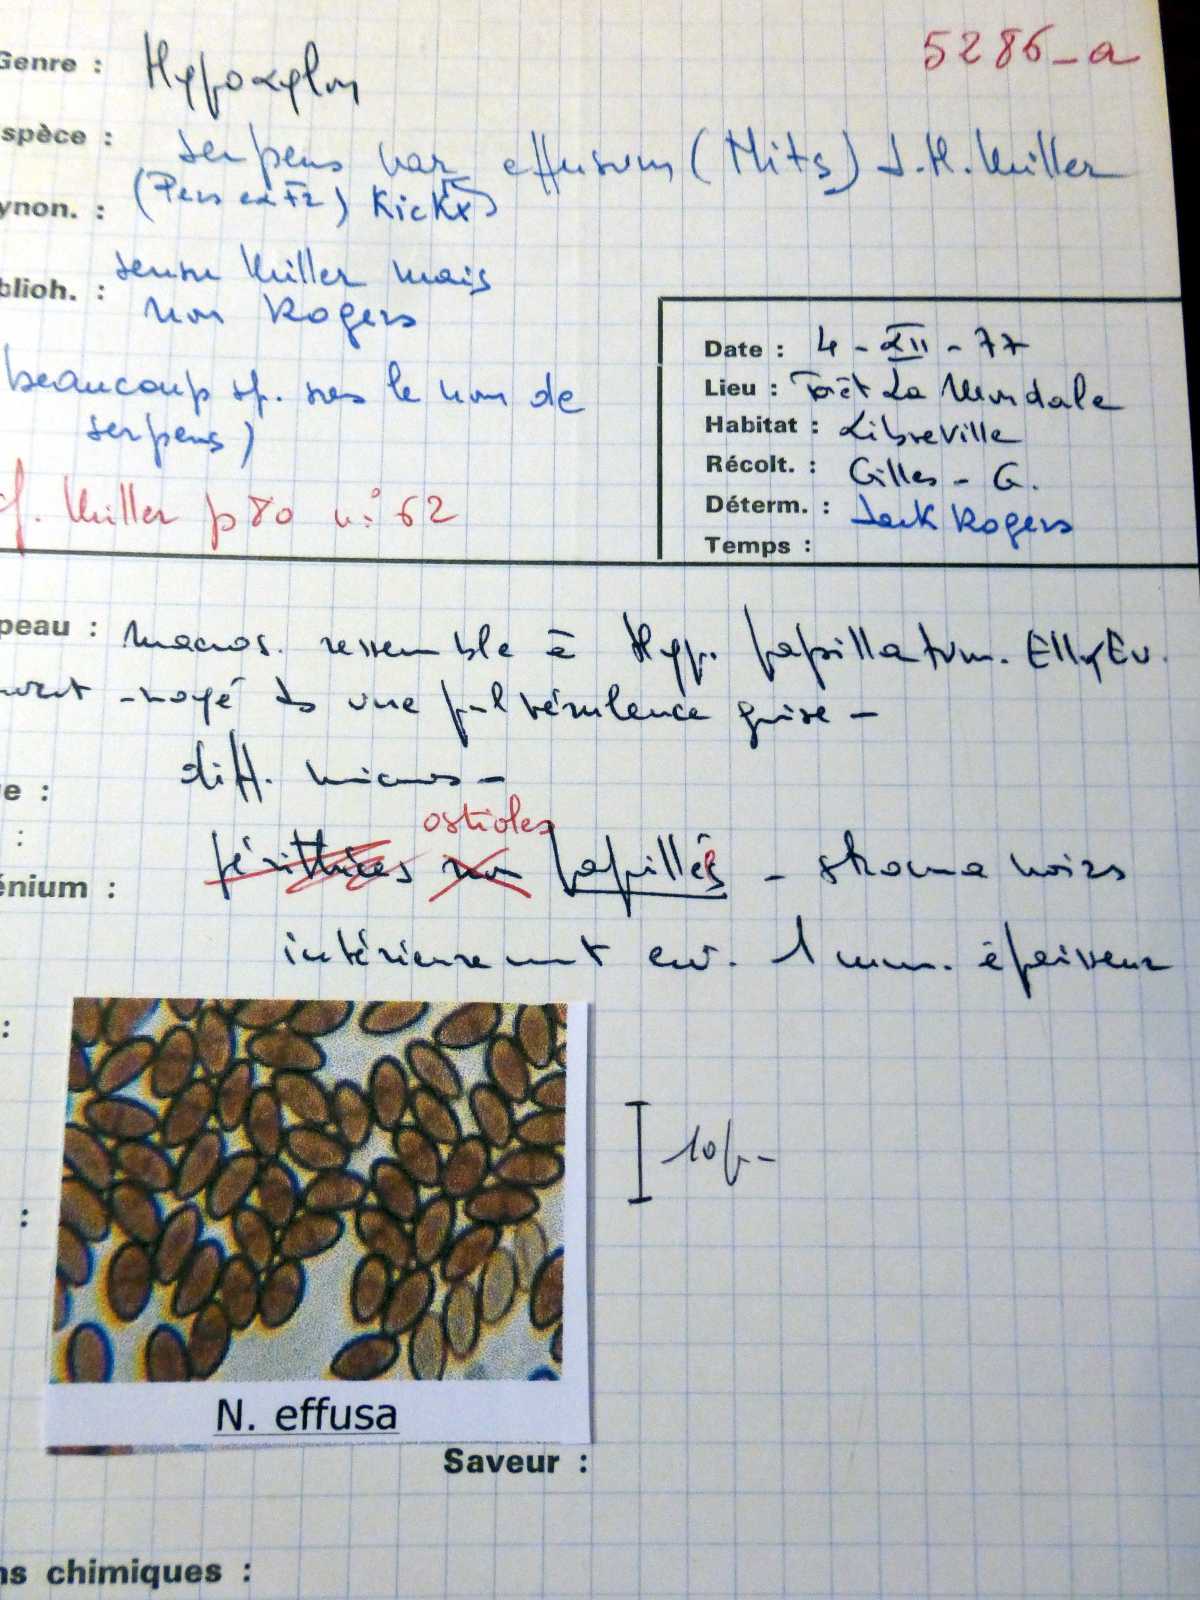 5286-a
Genre : Hypoxylon
spèce : serpens var effusum (Nits) J.H. Miller
ynon. : (Pers ex Fr) Kickx
sensu Miller mais
blioh. : non Rogers
beaucoup sp. sous le nom de
serpens)
cf. Miller p 80 n° 62
Date : 4 - XII - 77
Lieu : Forêt La Mondah
Habitat : Libreville
Récolt. : Gilles - G.
Déterm. : Jack Rogers
Temps :
peau : macros. ressemble à Hyp. papillatum. Ell & Ev.
noyé ds une pulvérulence grise -
diff. micros -
e :
:
ostioles
énium : périthèces non papillés - stroma noir
intérieurement env. 1 mm. épaisseur
:
10 µ -
:
N. effusa
Saveur :
ns chimiques :